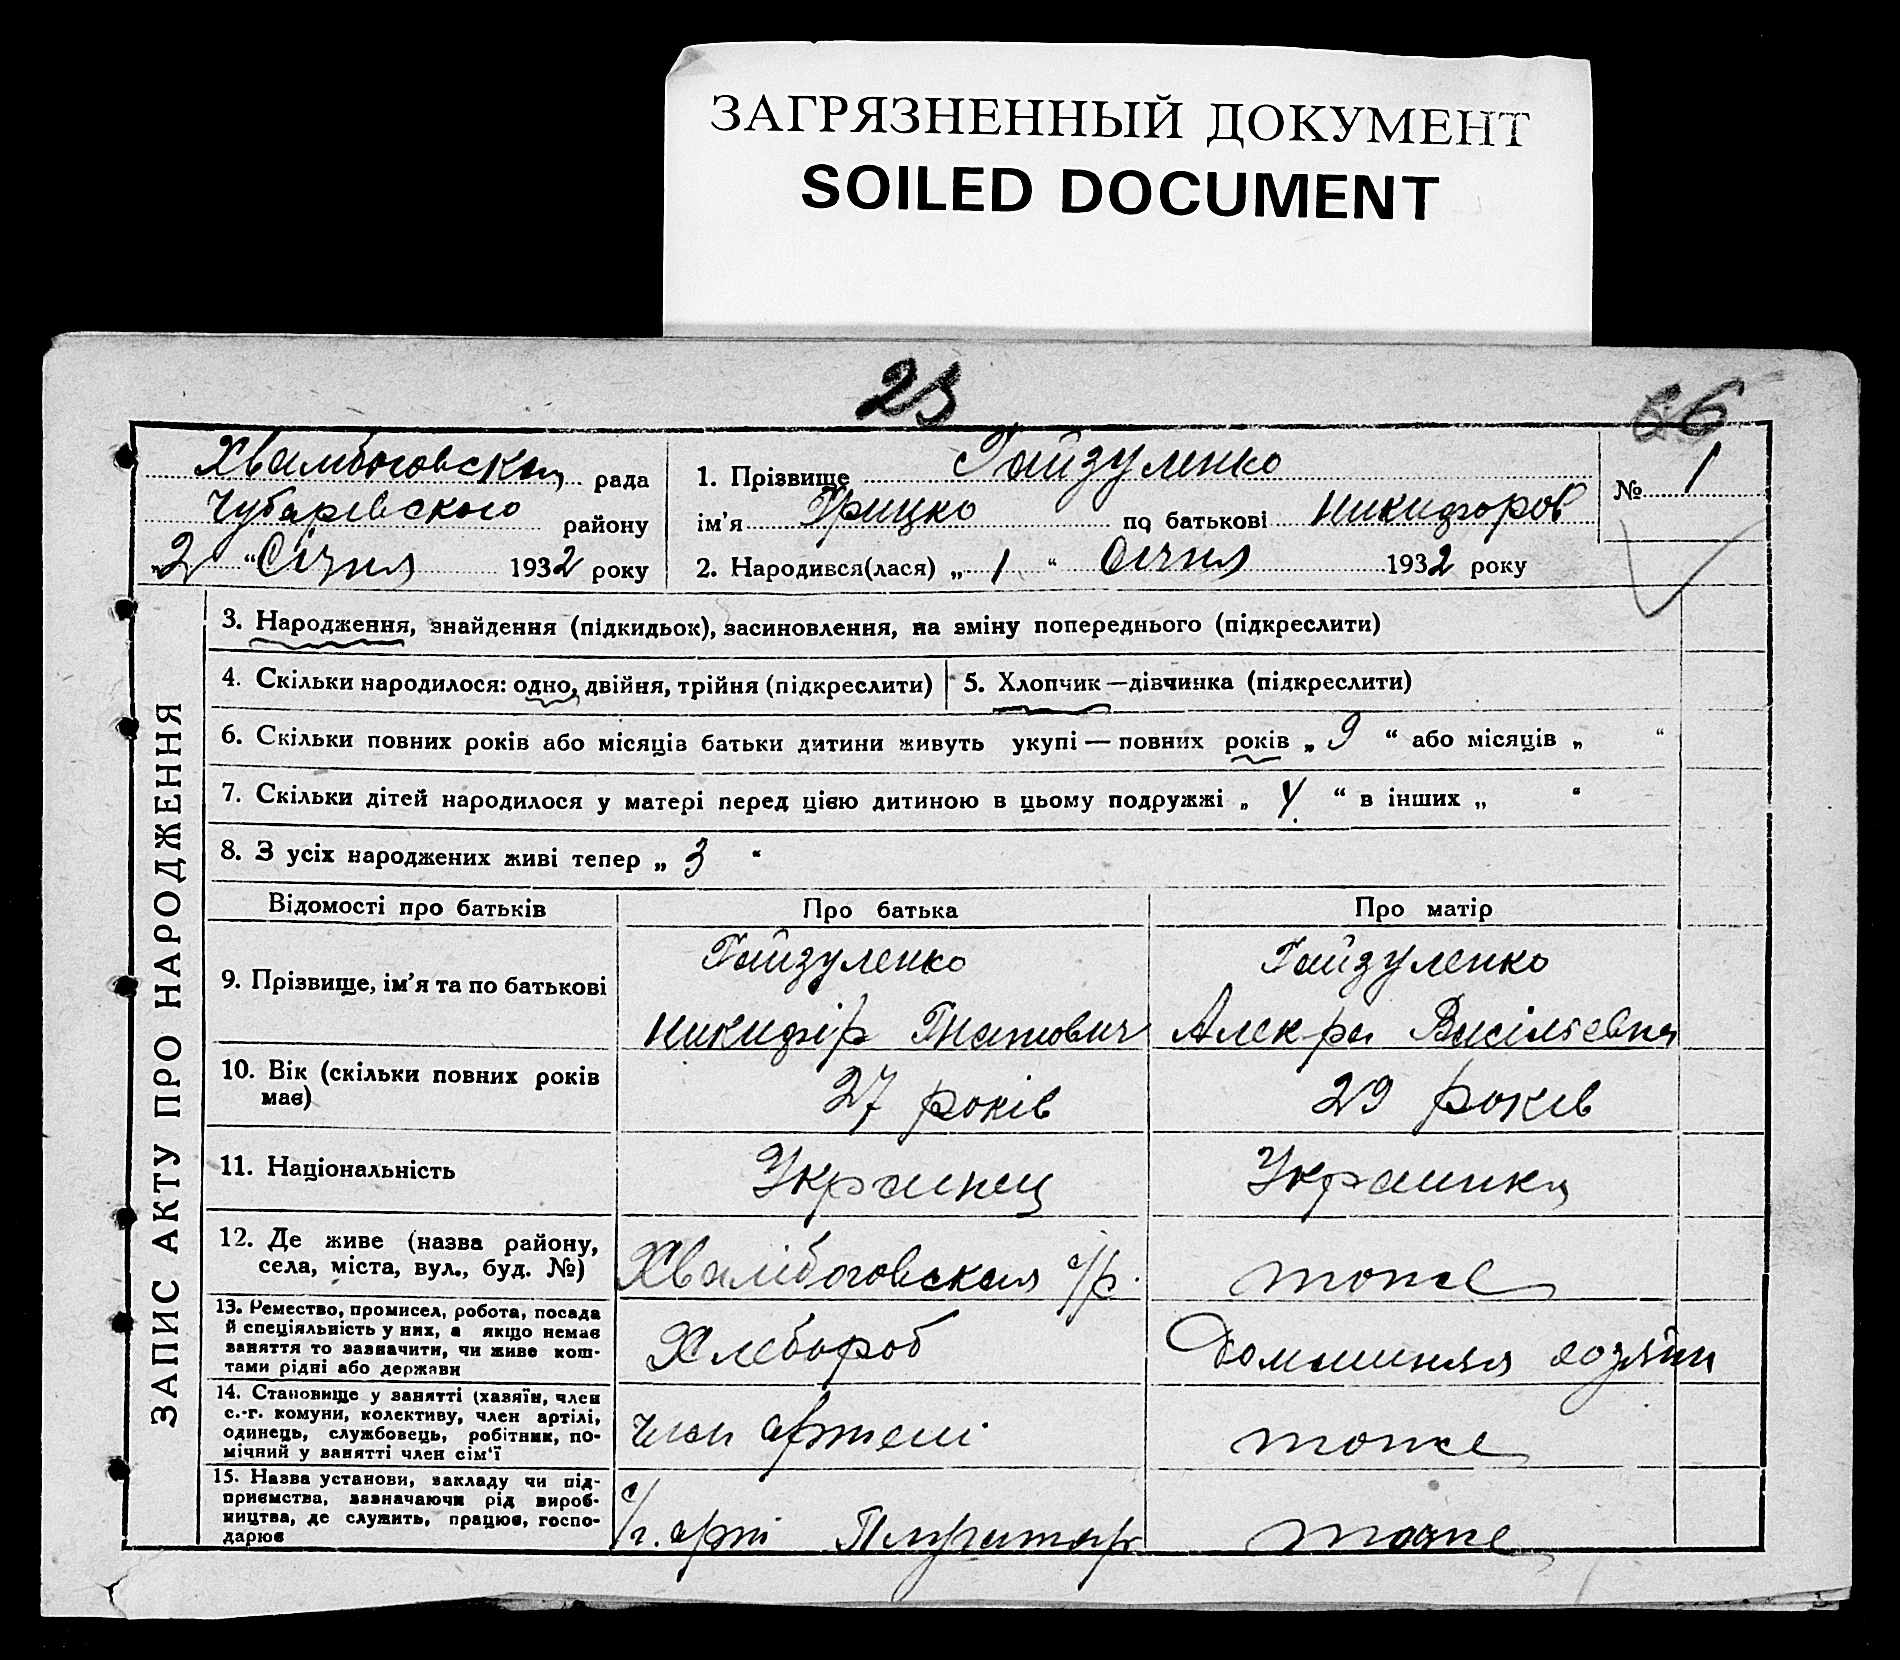 ЗАГРЯЗНЕННЫЙ ДОКУМЕНТ
SOILED DOCUMENT
23
66
Хвалибоговская рада
Чубаревского району
„2“ Січня 1932 року
1. Прізвище Гайзуленко
ім'я Грицко по батькові Никифоров
2. Народився(лася) „1“ Січня 1932 року
№ 1
ЗАПИС АКТУ ПРО НАРОДЖЕННЯ
3. Народження, знайдення (підкидьок), засиновлення, на зміну попереднього (підкреслити)
4. Скільки народилося: одно, двійня, трійня (підкреслити)
5. Хлопчик—дівчинка (підкреслити)
6. Скільки повних років або місяців батьки дитини живуть укупі — повних років „ 9 “ або місяців „ “
7. Скільки дітей народилося у матері перед цією дитиною в цьому подружжі „ 4 “ в інших „ “
8. З усіх народжених живі тепер „ 3 “
Відомості про батьків
Про батька
Про матір
9. Прізвище, ім'я та по батькові
Гайзуленко
Никифір Гнатович
Гайзуленко
Васільевна
10. Вік (скільки повних років
має)
27 років
29 років
11. Національність
Украинец
Украинка
12. Де живе (назва району,
села, міста, вул., буд. №)
Хвалібоговская с/р.
тоже
13. Ремество, промисел, робота, посада
й спеціяльність у них, а якщо немає
заняття то зазначити, чи живе кош-
тами рідні або держави
Хлебороб
Домашняя хозяйн
14. Становище у занятті (хазяїн, член
с.-г. комуни, колективу, член артілі,
одинець, службовець, робітник, по-
мічний у занятті член сім'ї
член артелі
тоже
15. Назва установи, закладу чи під-
приємства, зазначаючи рід вироб-
ництва, де служить, працює, госпо-
дарює
с/г. арт Плугатар
тоже